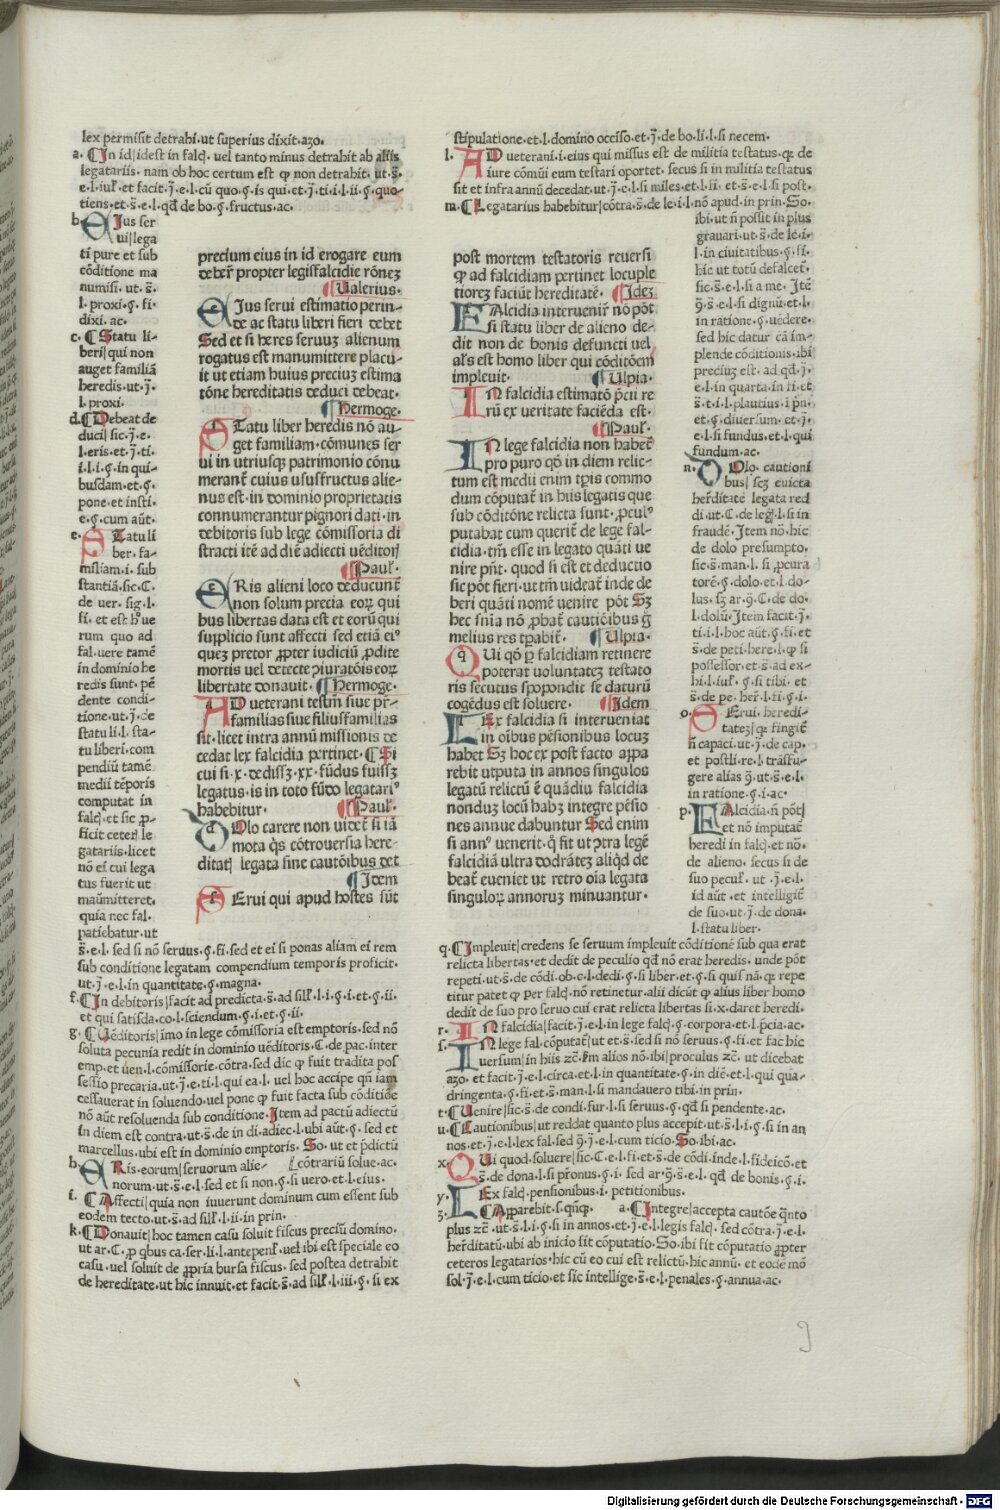 lex permisit detrahi·ut superius dixit·azo·
a. ¶In id|idest in falc̄ꝫ uel tanto minus detrahit ab aliis
legatariis· nam ob hoc certum est ꝙ non detrahit·ut·s̄·
tiens·et·s̄·e·l·qđ de bo·ꝗ·fructus·ac·
b. EIus ser
ui|lega
ti pure et sub
cōditione ma
numisi·ut·s̄·
l·proxi·ꝗ·fi·
dixi·ac·
c. ¶Statu li-
beri|qui non
auget familiā
heredis·ut·j̄·
l·proxi·
d. ¶Debeat de
duci|sic·j̄·e·
l·eris·et·j̄·ti·
i·l·i·ꝗ·in qui-
busdam·et·ꝗ·
pone·et insti·
e·ꝗ·cum aūt·
e. STatu li
ber·fa-
miliam·i·sub
stantiā·sic·C·
de uer·sig·l·
rum quo ad
fal·uere tamē
in dominio he
redis sunt·pē
dente condi-
tione·ut·j̄·de
statu li·l·sta-
tu liberi·com
pendiū tamē
medii tēporis
computat in
gatariis·licet
nō ei cui lega
tus fuerit ut
maūmitteret·
quia nec fal·
patiebatur·ut
s̄·e·l·sed si nō seruus·ꝗ·fi·sed et ei si ponas aliam ei rem
sub conditione legatam compendium temporis proficit·
ut·j̄·e·l·in quantitate·ꝗ·magna·
f. ¶In debitoris|facit ad predicta·s̄·ad sill̄·l·i·ꝗ·i·et·ꝗ·ii·
et qui satisda·co·l·sciendum·ꝗ·i·et·ꝗ·ii·
g. ¶Uēditoris|imo in lege cōmissoria est emptoris·sed nō
soluta pecunia redit in dominio uēditoris·C·de pac·inter
emp·et uen·l·cōmissorie·cōtra·sed dic ꝙ fuit tradita pos
sessio precaria·ut·j̄·e·ti·l·qui ea·l·uel hoc accipe qn̄ iam
cessauerat in soluendo·uel pone ꝙ fuit facta sub cōditiōe
nō aūt resoluenda sub conditione·Item ad pactū adiectū
in diem est contra·ut·s̄·de in di·adiec·l·ubi aūt·ꝗ·sed et
marcellus·ubi est in dominio emptoris·So·ut et p̄dictū
h. ERis·eorum|seruorum alie- ⁅cōtrariū solue·ac·
norum·ut·s̄·e·l·sed et si non·ꝗ·si uero et·l·eius·
i. ¶Affecti|quia non iuuerunt dominum cum essent sub
eodem tecto·ut·s̄·ad sill̄·l·ii·in prin·
k. ¶Donauit|hoc tamen casu soluit fiscus preciū domino·
ut ar·C·ꝓ qbus ca·ser·li·l·antepen̄l·uel ibi est speciale eo
casu·uel soluit de ꝓpria bursa fiscus·sed postea detrahit
de hereditate·ut hic innuit·et facit·s̄·ad sill̄·l·iii·ꝗ·si ex
precium eius in id erogare eum
deber̄ propter legisfalcidie rōneꝫ
¶Ualerius·
EIus serui estimatio perin-
de ac statu liberi fieri debet
Sed et si heres seruuꝫ alienum
rogatus est manumittere placu-
it ut etiam huius preciuꝫ estima
tōne hereditatis deduci debeat·
¶Hermoge·
STatu liber heredis nō au-
get familiam·cōmunes ser
ui in utriusqꝫ patrimonio cōnu
merant̄ cuius ususfructus alie-
nus est·in dominio proprietatis
connumerantur pignori dati·in
debitoris sub lege cōmissoria di
stracti itē ad diē adiecti uēditorꝭ
¶Paul̄·
ERis alieni loco deducunt̄
non solum precia eoꝝ qui
bus libertas data est et eorū qui
supplicio sunt affecti sed etiā ei⁹
queꝫ pretor ꝓpter iudiciū ꝓdite
mortis uel detecte ꝯiuratōis eoꝝ
libertate donauit· ¶Hermoge·
AD ueterani testm̄ siue pr̄-
familias siue filiusfamilias
sit·licet intra annū missionis de
cedat lex falcidia pertinet·¶Si
cui si·x·dedissꝫ·xx·fūdus fuissꝫ
legatus·is in toto fūdo legatari⁹
habebitur· ¶Paul̄·
DOlo carere non uidet̄ si iā
mota qs̄ cōtrouersia here-
ditatꝭ legata sine cautōibus det
¶Idem
SErui qui apud hostes sūt
stipulatione·et·l·domino occiso·et·j̄·de bo·li·l·si necem·
l. AD ueterani·i·eius qui missus est de militia testatus·qꝫ de
iure cōmūi eum testari oportet·secus si in militia testatus
sit et infra annū decedat·ut·j̄·e·l·si miles·et·l·fi·et·s̄·e·l·si post·
m. ¶Legatarius habebitur|cōtra·s̄·de le·i·l·nō apud·in prin·So·
ibi·ut n̄ possit in plus
grauari·ut·s̄·de le·i-
l·in ciuitatibus·ꝗ·fi·
hic ut totū defalcet̄·
sic·s̄·e·l·si a me·Itē
in ratione·ꝗ·uēdere·
sed hic datur cā im-
plende cōditionis·ibi
e·l·in quarta·in fi·et
s̄·t·i·l·plautius·i p̄n·
et·ꝗ·diuersum·et·j̄·
e·l·si fundus·et·l·qui
fundum·ac·
n. DOlo·cautioni
bus|scꝫ euicta
her̄ditate legata red
di·ut·C·de leḡ·l·si in
fraudē·Item nō·hic
de dolo presumpto·
sic·s̄·man·l·si ꝓcura
torē·ꝗ·dolo·et·l·do-
l·dolū·Item facit·j̄·
ti·i·l·hoc aūt·ꝗ·fi·et
s̄·de peti·here·l·ꝙ si
possessor·et·s̄·ad ex-
o. SErui·heredi-
tateꝫ|qꝫ fingit̄
n̄ capaci·ut·j̄·de cap·
et postli·re·l·trāsfu-
in ratione·ꝗ·i·ac·
p. FAlcidia·n̄ pōt|
et nō imputat̄
heredi in falc̄ꝫ·et nō·
de alieno·secus si de
suo pecul̄·ut·j̄·e·l·
id aūt·et intelligit̄
de suo·ut·j̄·de dona·
l·statu liber·
post mortem testatoris reuersi
ꝙ ad falcidiam pertinet locuple
tioreꝫ faciūt hereditatē· ¶Ideꝫ
FAlcidia interuenir̄ nō pōt
si statu liber de alieno de-
dit non de bonis defuncti uel
al̄s est homo liber qui cōditōem
impleuit· ¶Ulpia·
IN falcidia estimatō p̄cii re
rū ex ueritate faciēda est·
¶Paul̄·
IN lege falcidia non haber̄
pro puro qđ in diem relic-
tum est medii enim tp̄is commo
dum cōputat̄ in hiis legatis que
sub cōditōne relicta sunt·ꝓcul⁹
putabat cum querit̄ de lege fal-
cidia·tm̄ esse in legato quāti ue
nire pn̄t·quod si est et deductio
sic pōt fieri·ut tm̄ uideat̄ inde de
beri quāti nomē uenire pōt Sꝫ
hec sn̄ia nō ꝓbat̄ cautiōibus g̈
melius res tꝑabit̄· ¶Ulpia·
QUi qđ ꝑ falcidiam retinere
poterat uoluntateꝫ testato
ris secutus spopondit se daturū
cogēdus est soluere· ¶Idem
LEx falcidia si interueniat
in oībus pēsionibus locuꝫ
habet Sꝫ hoc ex post facto appa
rebit utputa in annos singulos
legatū relictū ē quādiu falcidia
nonduꝫ locū habꝫ integre pēsio
nes annue dabuntur Sed enim
si ann⁹ uenerit·q̄ fit ut ꝯtra legē
falcidiā ultra dodrāteꝫ aliqđ de
beat̄ eueniet ut retro oīa legata
singuloꝝ annoruꝫ minuantur·
q. ¶Impleuit|credens se seruum impleuit cōditionē sub qua erat
relicta libertas·et dedit de peculio qđ nō erat heredis·unde pōt
repeti·ut·s̄·de cōdi·ob·c·l·dedi·ꝗ·si liber·et·ꝗ·si quis nā·qꝫ repe
titur patet ꝙ per falc̄ꝫ·nō retinetur·alii dicūt ꝙ alius liber homo
dedit de suo pro seruo cui erat relicta libertas si·x·daret heredi·
r. IN falcidia|facit·j̄·e·l·in lege falc̄ꝫ·ꝗ·corpora·et·l·p̄cia·ac·
s. IN lege fal·cōputat̄|ut et·s̄·sed si nō seruus·ꝗ·fi·et fac hic
azo·et facit·j̄·e·l·circa·et·l·in quantitate·ꝗ·in diē·et·l·qui qua-
dringenta·ꝗ·fi·et·s̄·man·l·si mandauero tibi·in prin·
t. ¶Uenire|sic·s̄·de condi·fur·l·si seruus·ꝗ·qđ si pendente·ac·
u. ¶Cautionibus|ut reddat quanto plus accepit·ut·s̄·l·i·ꝗ·si in an
nos·et·j̄·e·l·lex fal·sed ꝯ̄·j̄·e·l·cum ticio·So·ibi·ac·
x. QUi quod soluere|sic·C·e·l·fi·et·s̄·de cōdi·inde·l·fideicō·et
s̄·de dona·l·si pr̄onus·ꝗ·i·sed ar·ꝯ̄·s̄·e·l·qđ de bonis·ꝗ·i·
y. LEx falc̄ꝫ·pensionibus·i·petitionibus·
z. ¶Apparebit·s·qn̄qꝫ· a. ¶Integre|accepta cautōe qn̄to
plus ꝛc̄·ut·s̄·l·i·ꝗ·si in annos·et·j̄·e·l·legis falc̄ꝫ·sed cōtra·j̄·e·l·
her̄ditatū·ubi ab inicio fit cōputatio·So·ibi fit cōputatio ꝓpter
ceteros legatarios·hic cū eo cui est relictū·hic annū·et eodē mō
sol·j̄·e·l·cum ticio·et sic intellige·s̄·e·l·penales·ꝗ·annua·ac·
Digitalisierung gefördert durch die Deutsche Forschungsgemeinschaft - DFG